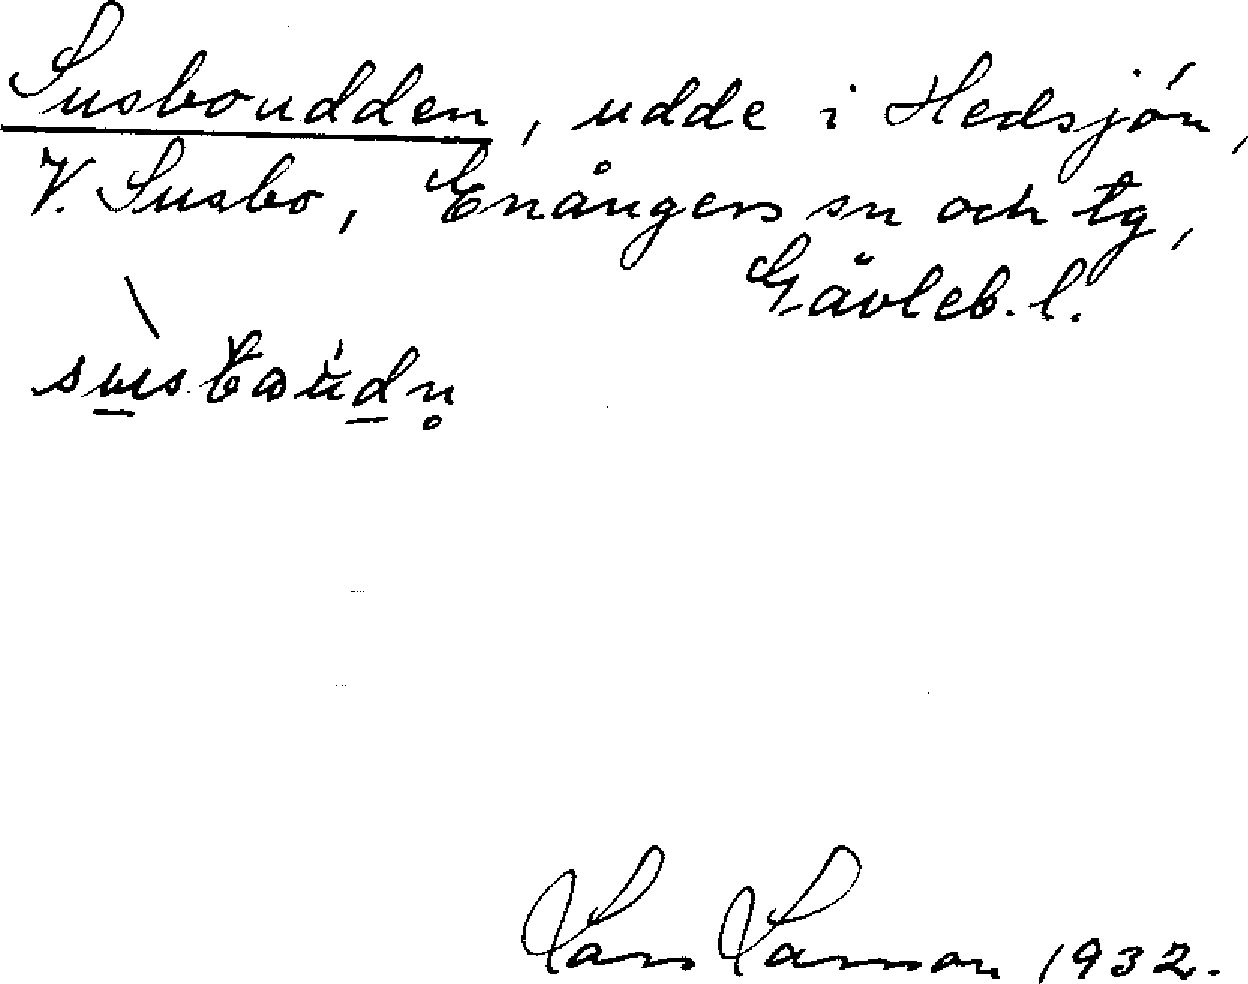 Susboudden, udde i Hedsjön,
V. Susbo, Enångers sn och tg,
Gävleb. l.
Lars Larsson 1932.